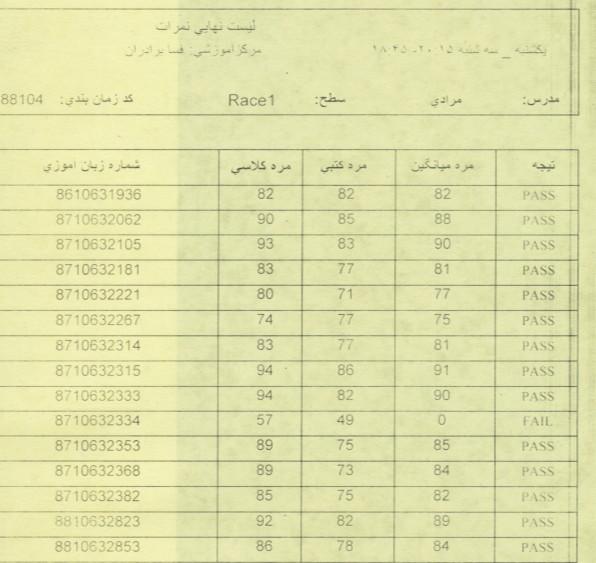 ليست نهايي نمرات
يكشنبه _ سه شنبه ۲۰:۱۵-۱۸:۴۵ مركزآموزشي: فسا برادران
مدرس: مرادي سطح: Race1 كد زمان بندي: 88104
تيجه مره ميانگين مره كتبي مره كلاسي شماره زبان اموزي
PASS 82 82 82 8610631936
PASS 88 85 90 8710632062
PASS 90 83 93 8710632105
PASS 81 77 83 8710632181
PASS 77 71 80 8710632221
PASS 75 77 74 8710632267
PASS 81 77 83 8710632314
PASS 91 86 94 8710632315
PASS 90 82 94 8710632333
FAIL 0 49 57 8710632334
PASS 85 75 89 8710632353
PASS 84 73 89 8710632368
PASS 82 75 85 8710632382
PASS 89 82 92 8810632823
PASS 84 78 86 8810632853